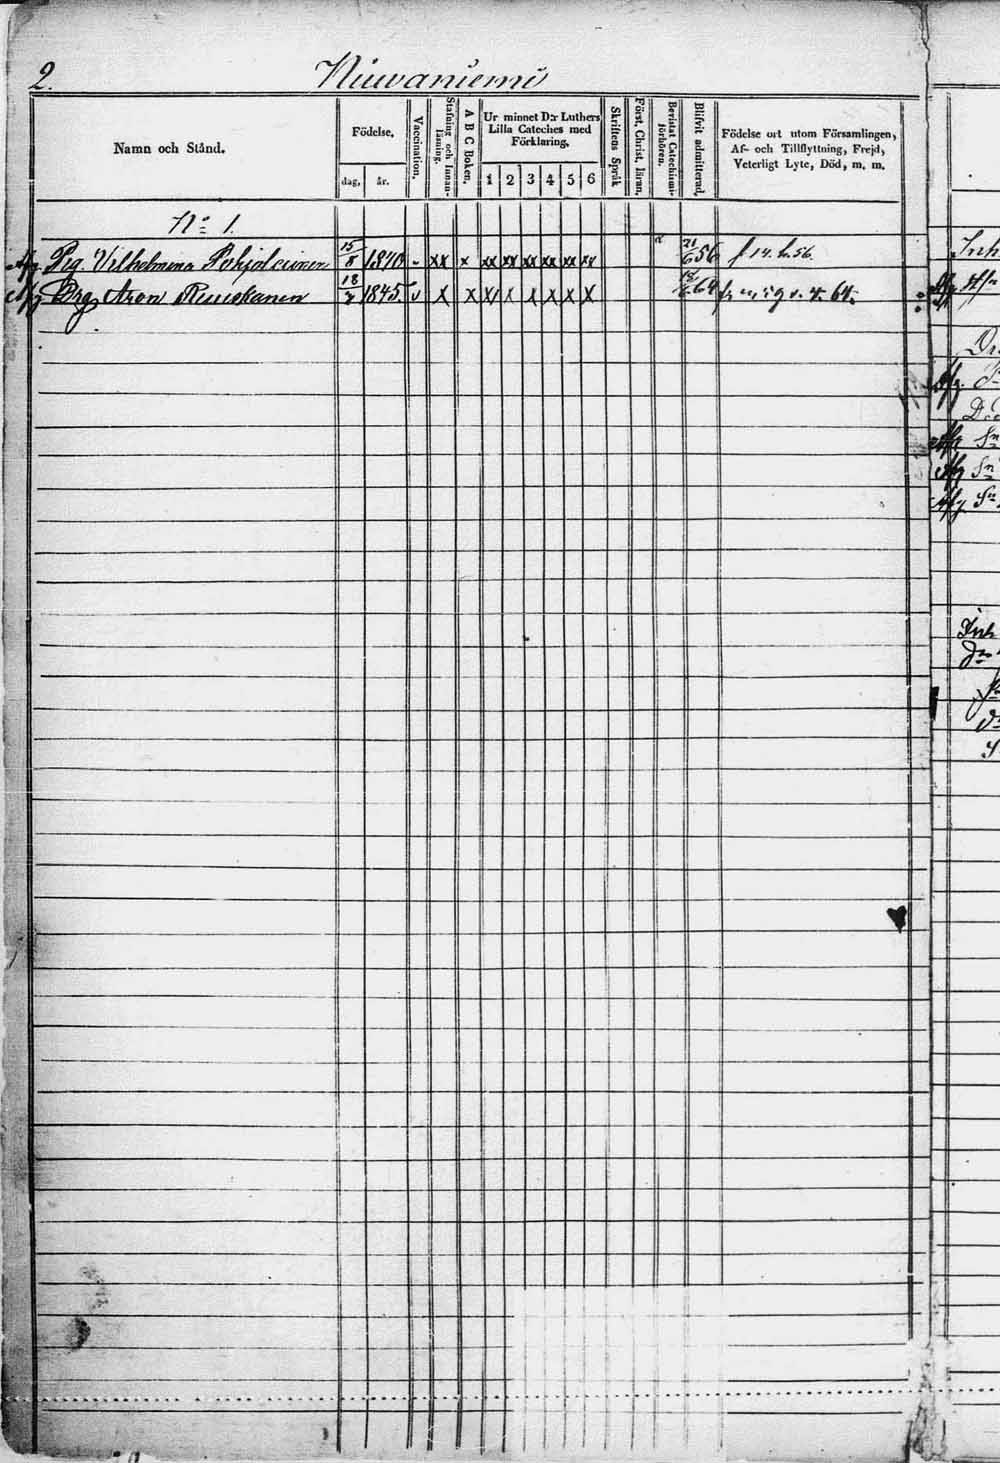 2.
Niuvaniemi
Namn och Stånd.
Födelse,
dag,
år.
Vaccination.
Stafning och Innan-
läsning.
A B C Boken.
Ur minnet D:r Luthers
Lilla Cateches med
Förklaring,
1 2 3 4 5 6
Skriftens Språk
Först. Christ. läran.
Bevistat Catechismi-
förhören.
Blifvit admitterad,
Födelse ort utom Församlingen,
Af- och Tillflyttning, Frejd,
Veterligt Lyte, Död, m. m.
No 1.
Afg. Pig. Vilhelmina Pohjalainen 15/8 1840 - xx x xx xx xx xx xx xx 21/6 56 f 14. h. 56.
Afg Drg Aron Reuiskanen 18/7 1845. v x x x x x x x x 18/6 64
Inh
Afg
Afg.
Afg Sn
Afg Sn
Afg Sn
Inh